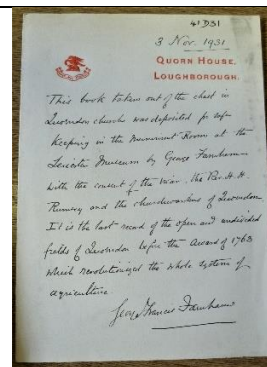 41D31
3 Nov. 1931
QUORN HOUSE,
LOUGHBOROUGH.
This book taken out of the chest in
Quorndon church was deposited for safe
keeping in the Muniment Room at the
Leicester Museum by George Farnham
with the consent of the vicar. the Rev. H. H.
Rumsey and the churchwardens of Quorndon
It is the last record of the open and undivided
fields of Quorndon before the Award of 1763
which revolutionized the whole system of
agriculture
George Francis Farnham